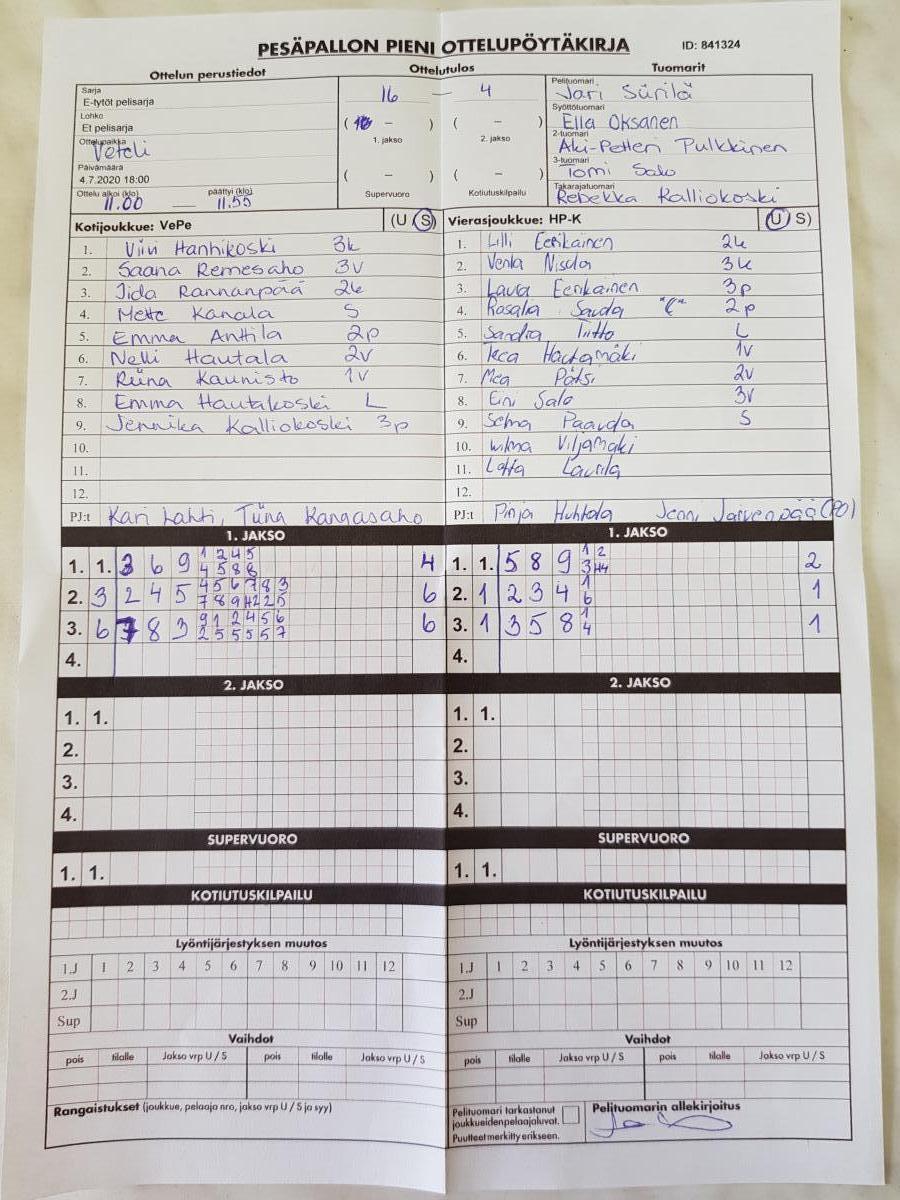 PESÄPALLON PIENI OTTELUPÖYTÄKIRJA
ID: 841324
Ottelun perustiedot
Ottelutulos
Tuomarit
Sarja
E-tytöt pelisarja
Lohko
Et pelisarja
Ottelupaikka
Veteli
Päivämäärä
4.7.2020 18:00
Ottelu alkoi (klo) päättyi (klo)
11.00 — 11.55
16 — 4
( – ) ( – )
1. jakso 2. jakso
( – ) ( – )
Supervuoro Kotiutuskilpailu
Pelituomari
Jari Siirilä
Syöttötuomari
Ella Oksanen
2-tuomari
Aki-Petteri Pulkkinen
3-tuomari
Tomi Salo
Takarajatuomari
Rebekka Kalliokoski
Kotijoukkue: VePe (U S)
1. Viivi Hanhikoski 3k
2. Saana Remesaho 3v
3. Iida Rannanpää 2k
4. Mette Kanala S
5. Emma Anttila 2p
6. Nelli Hautala 2v
7. Riina Kaunisto 1v
8. Emma Hautakoski L
9. Jennika Kalliokoski 3p
10.
11.
12.
PJ:t Kari Lahti, Tiina Kangasaho
Vierasjoukkue: HP-K (U S)
1. Lilli Eerikäinen 2k
2. Venla 3k
3. Laura Eerikäinen 3p
4. "C" 2p
5. Sandra Tiitto L
6. Hautamäki 1v
7. 2v
8. Eini Salo 3v
9. Selma S
10. Wilma Viljamäki
11. Lotta Laurila
12.
PJ:t Pinja Huhtala Jenni Järvenpää (PO)
1. JAKSO
1. 1. 3 6 9 1 2 4 5 4
4 5 8 8
2. 3 2 4 5 4 5 6 7 8 3 6
3. 6 7 8 3 9 1 2 4 5 6 6
2 5 5 5 5 7
4.
1. JAKSO
1. 1. 5 8 9 1 2 2
2. 1 2 3 4 1 1
6
3. 1 3 5 8 1 1
4
4.
2. JAKSO
1. 1.
2.
3.
4.
2. JAKSO
1. 1.
2.
3.
4.
SUPERVUORO
1. 1.
SUPERVUORO
1. 1.
KOTIUTUSKILPAILU
KOTIUTUSKILPAILU
Lyöntijärjestyksen muutos
1.J 1 2 3 4 5 6 7 8 9 10 11 12
2.J
Sup
Lyöntijärjestyksen muutos
1.J 1 2 3 4 5 6 7 8 9 10 11 12
2.J
Sup
Vaihdot
pois tilalle Jakso vrp U / S pois tilalle Jakso vrp U / S
Vaihdot
pois tilalle Jakso vrp U / S pois tilalle Jakso vrp U / S
Rangaistukset (joukkue, pelaaja nro, jakso vrp U / S ja syy)
Pelituomari tarkastanut
joukkueidenpelaajaluvat.
Puutteet merkitty erikseen.
Pelituomarin allekirjoitus